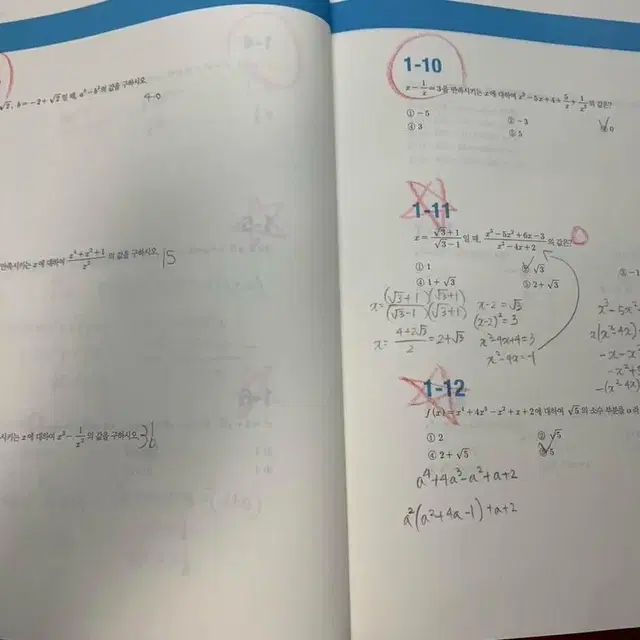 √3, b=-2+√3일 때, a³-b³의 값을 구하시오.
만족시키는 x에 대하여 (x⁴+x²+1)/x²의 값을 구하시오. 15
시키는 x에 대하여 x³-1/x³의 값을 구하시오. 36
1-10
x-1/x=3을 만족시키는 x에 대하여
① -5
② -3
④ 3
⑤ 5
0
1-11
x=(√3+1)/(√3-1)일 때, (x³-5x²+6x-3)/(x²-4x+2)의 값은?
① 1
√3
④ 1+√3
⑤ 2+√3
x=(√3+1)(√3+1)/(√3-1)(√3+1)
x=(4+2√3)/2=2+√3
x-2=√3
(x-2)²=3
x²-4x+4=3
x²-4x=-1
x³-5x²
1-12
f(x)=x⁴+4x³-x²+x+2에 대하여 √5의 소수 부분을 a라
① 2
② √5
④ 2+√5
a⁴+4a³-a²+a+2
a²(a²+4a-1)+a+2